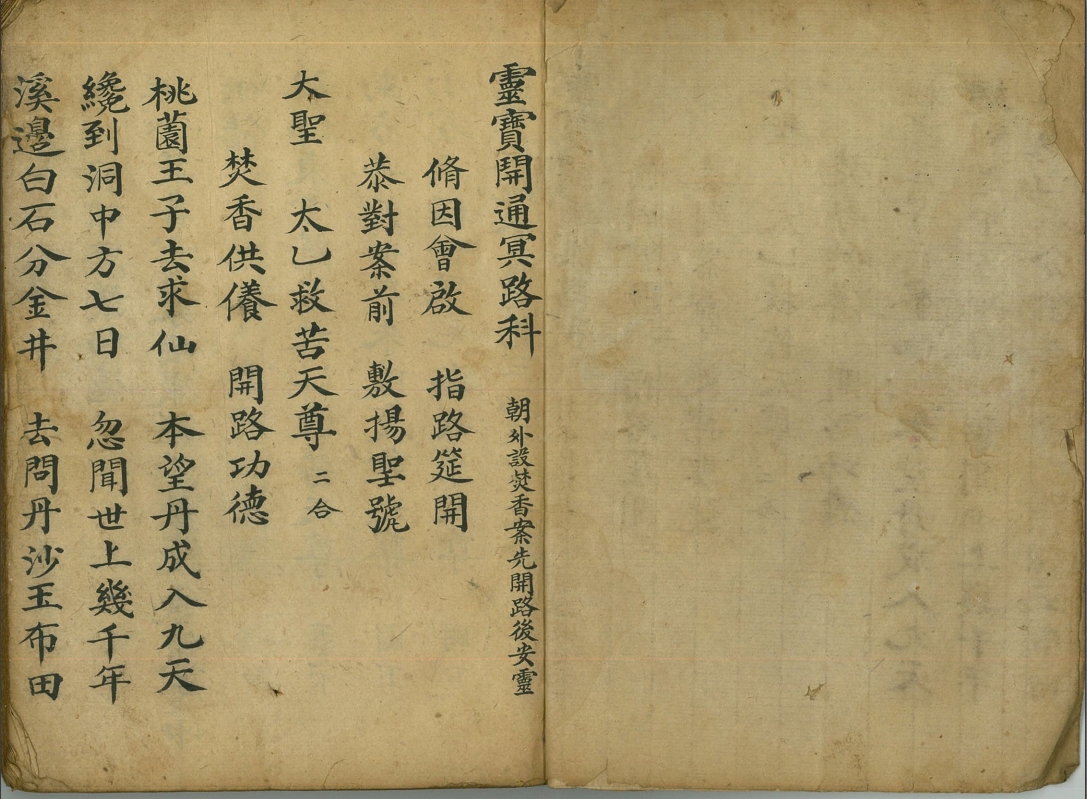 靈寳開通冥路科 朝外設焚香案先開路後安靈
脩因會啟 指路筵開
恭對案前 敷揚聖號
大聖 太乙救苦天尊 二合
焚香供儀 開路功德
桃薗王子去求仙 本望丹成入九天
纔到洞中方七日 忽聞世上幾千年
溪邉白石分金井 去問丹沙玉布田